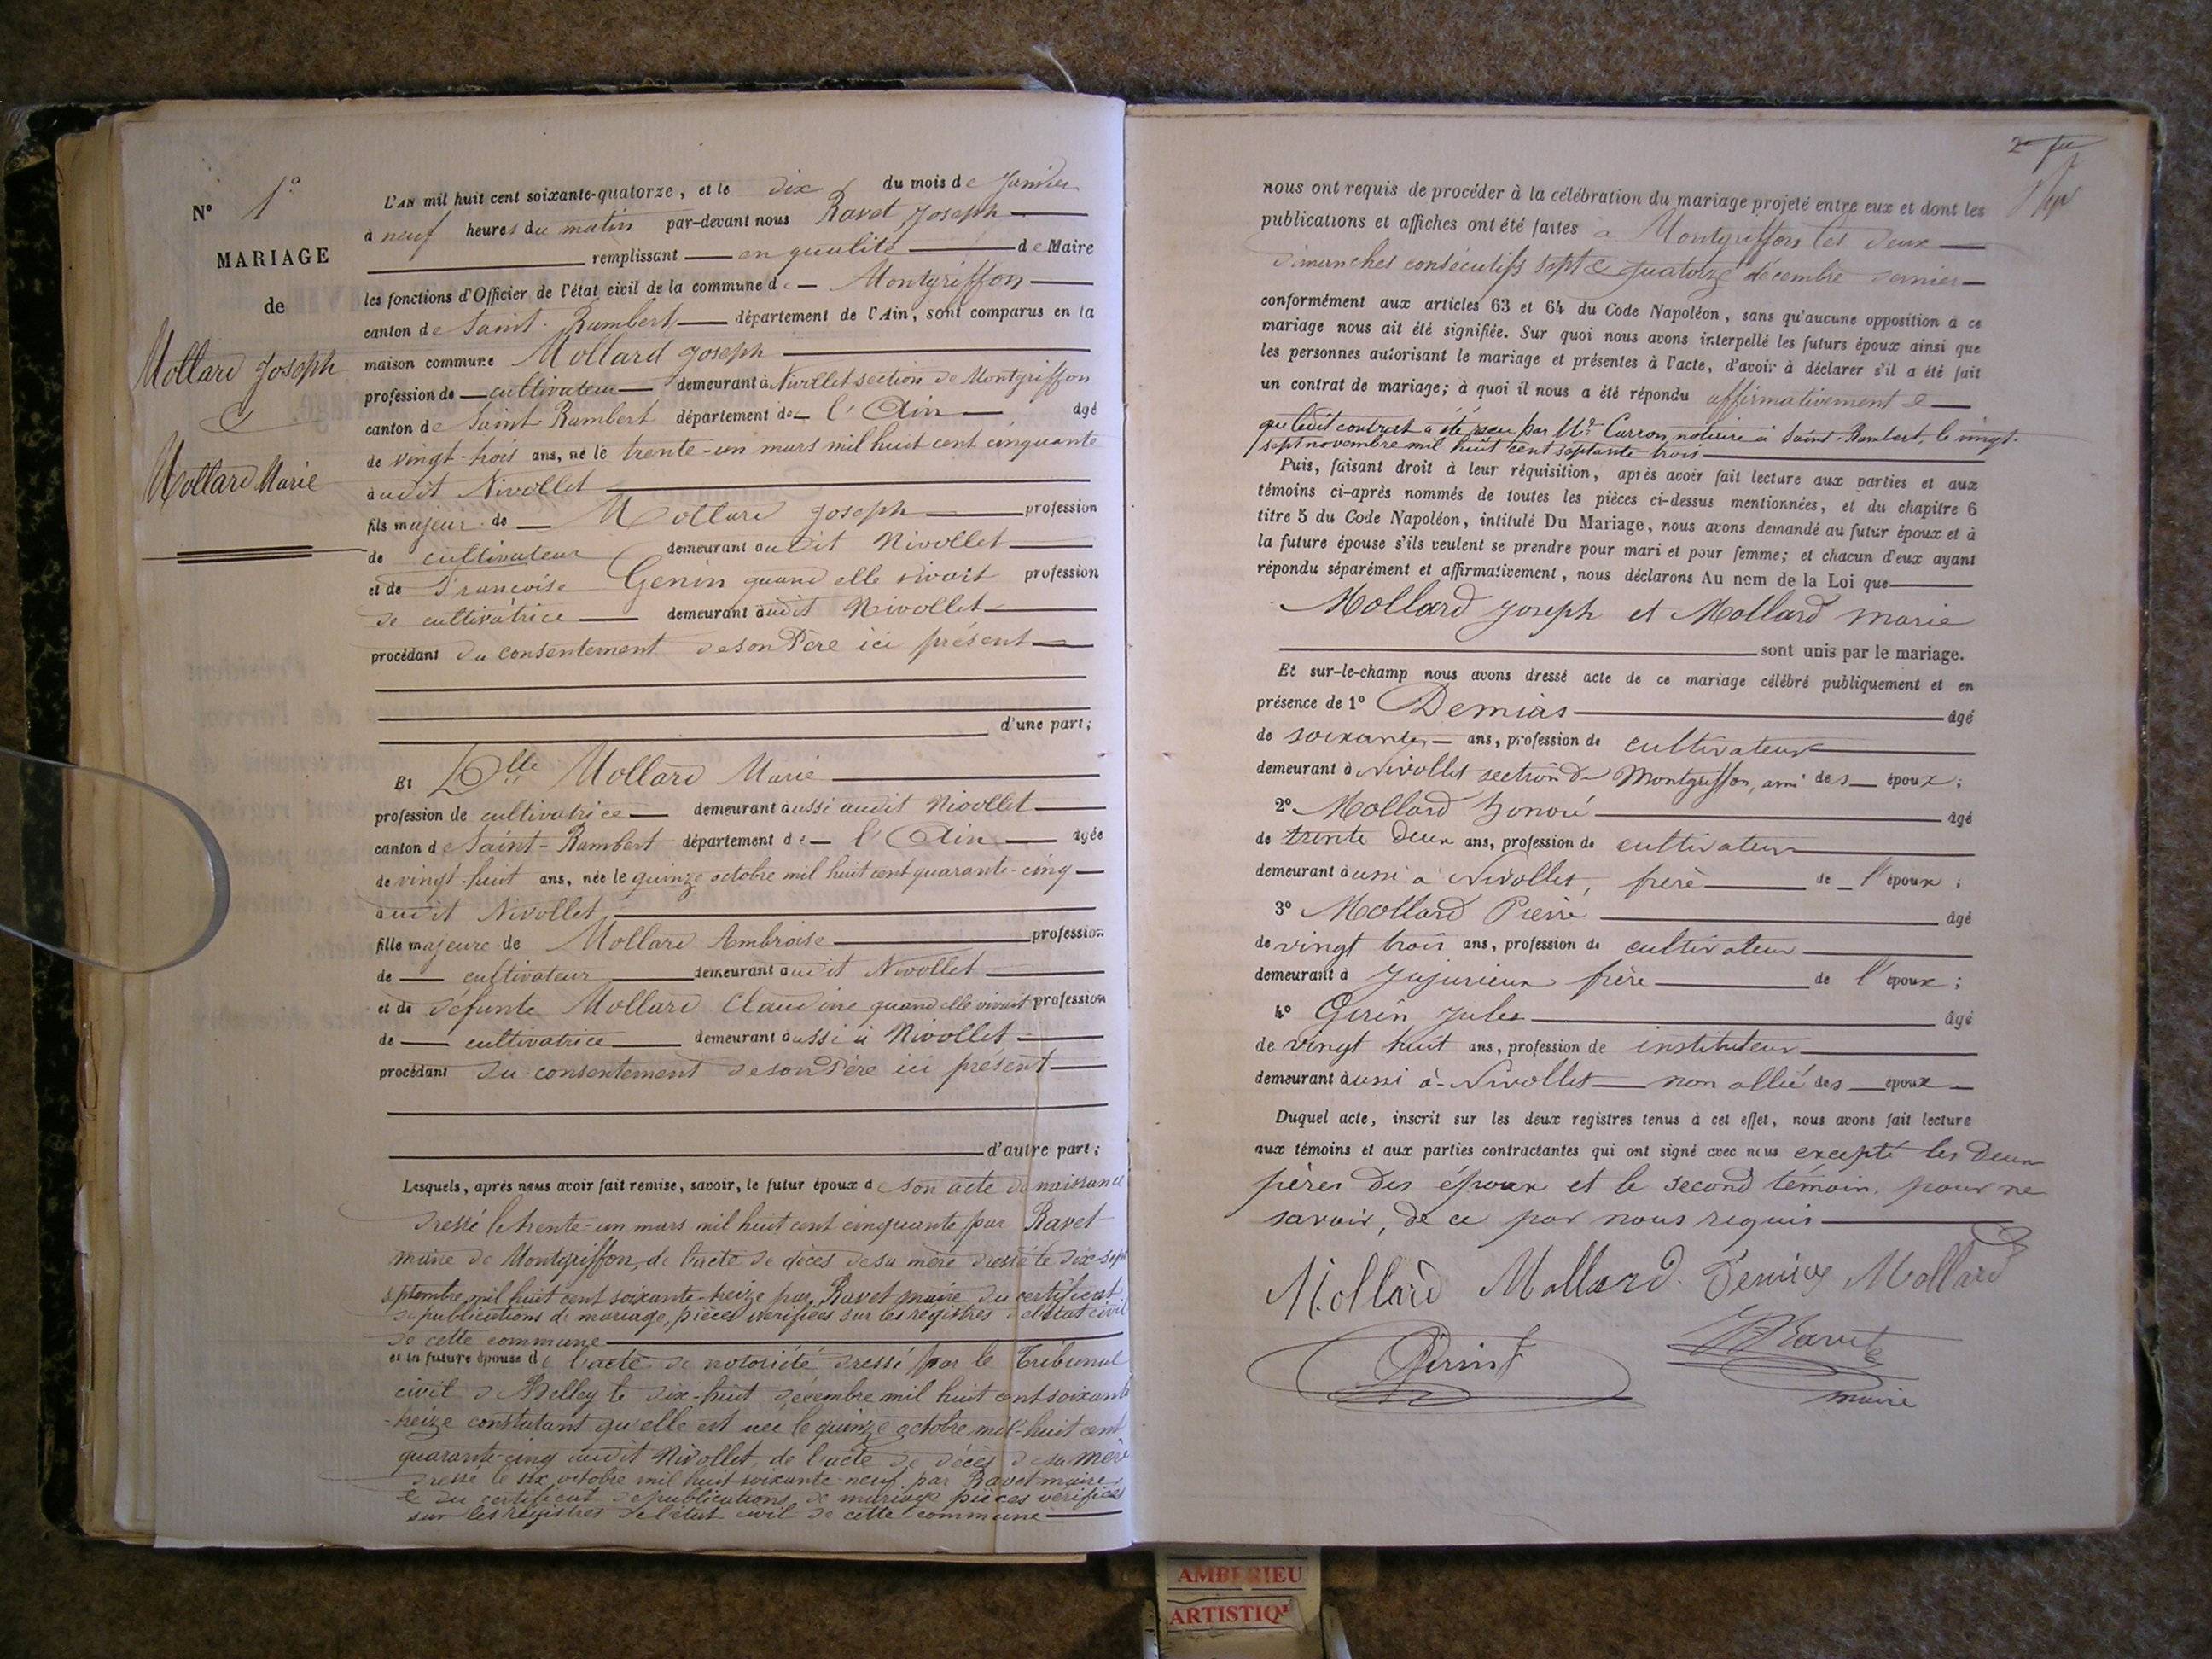 N° 1°
MARIAGE
de
Mollard Joseph
&
Mollard Marie
L'AN mil huit cent soixante-quatorze, et le dix du mois de Janvier
à neuf heures du matin par-devant nous Ravet Joseph
remplissant en qualité de Maire
les fonctions d'Officier de l'état civil de la commune de Montgriffon
canton de Saint-Rambert département de l'Ain, sont comparus en la
maison commune Mollard Joseph
profession de cultivateur demeurant à Nivollet section de Montgriffon
canton de Saint Rambert département de l'Ain âgé
de vingt-trois ans, né le trente-un mars mil huit cent cinquante
audit Nivollet
fils majeur de Mollard Joseph profession
de cultivateur demeurant audit Nivollet
et de Francoise Genin quand elle vivait profession
de cultivatrice demeurant audit Nivollet
procédant du consentement de son Père ici présent
d'une part;
Et Dlle Mollard Marie
profession de cultivatrice demeurant aussi audit Nivollet
canton de Saint-Rambert département de l'Ain âgée
de vingt-huit ans, née le quinze octobre mil huit cent quarante-cinq
audit Nivollet
fille majeure de Mollard Ambroise profession
de cultivateur demeurant audit Nivollet
et de défunte Mollard Claudine quand elle vivait profession
de cultivatrice demeurant aussi à Nivollet
procédant du consentement de son Père ici présent
d'autre part;
Lesquels, après nous avoir fait remise, savoir, le futur époux de son acte de naissance
dressé le trente-un mars mil huit cent cinquante par Ravet
maire de Montgriffon, de l'acte de décès de sa mère dressé le dix-sept
septembre mil huit cent soixante-treize par Ravet maire du certificat
de publications de mariage, pièces vérifiées sur les registres de l'état civil
de cette commune
et la future épouse de l'acte de notoriété dressé par le Tribunal
civil de Belley le dix-huit décembre mil huit cent soixante
-treize constatant qu'elle est née le quinze octobre mil-huit cent
quarante-cinq audit Nivollet, de l'acte de décès de sa mère
dressé le six octobre mil huit soixante-neuf par Ravet maire
& du certificat de publications de mariage pièces vérifiées
sur les registres de l'état civil de cette commune
nous ont requis de procéder à la célébration du mariage projeté entre eux et dont les
publications et affiches ont été faites à Montgriffon les deux
dimanches consécutifs sept & quatorze décembre dernier
conformément aux articles 63 et 64 du Code Napoléon, sans qu'aucune opposition à ce
mariage nous ait été signifiée. Sur quoi nous avons interpellé les futurs époux ainsi que
les personnes autorisant le mariage et présentes à l'acte, d'avoir à déclarer s'il a été fait
un contrat de mariage; à quoi il nous a été répondu affirmativement &
que ledit contrat a été reçu par Me Carron, notaire à Saint-Rambert, le vingt-
sept novembre mil huit cent septante trois
Puis, faisant droit à leur réquisition, après avoir fait lecture aux parties et aux
témoins ci-après nommés de toutes les pièces ci-dessus mentionnées, et du chapitre 6
titre 5 du Code Napoléon, intitulé Du Mariage, nous avons demandé au futur époux et à
la future épouse s'ils veulent se prendre pour mari et pour femme; et chacun d'eux ayant
répondu séparément et affirmativement, nous déclarons Au nom de la Loi que
Mollard Joseph et Mollard Marie
sont unis par le mariage.
Et sur-le-champ nous avons dressé acte de ce mariage célébré publiquement et en
présence de 1° Demias âgé
de soixante ans, profession de cultivateur
demeurant à Nivollet section de Montgriffon, ami des époux;
2° Mollard Honoré âgé
de trente deux ans, profession de cultivateur
demeurant aussi à Nivollet, frère de l'époux;
3° Mollard Pierre âgé
de vingt trois ans, profession de cultivateur
demeurant à Jujurieux frère de l'époux;
4° Girin Jules âgé
de vingt huit ans, profession de instituteur
demeurant aussi à Nivollet non allié des époux
Duquel acte, inscrit sur les deux registres tenus à cet effet, nous avons fait lecture
aux témoins et aux parties contractantes qui ont signé avec nous excepté les deux
pères des époux et le second témoin, pour ne
savoir, de ce par nous requis
Mollard Mollard Demias Mollard
Girin J Ravet
maire
AMBERIEU
ARTISTIQ